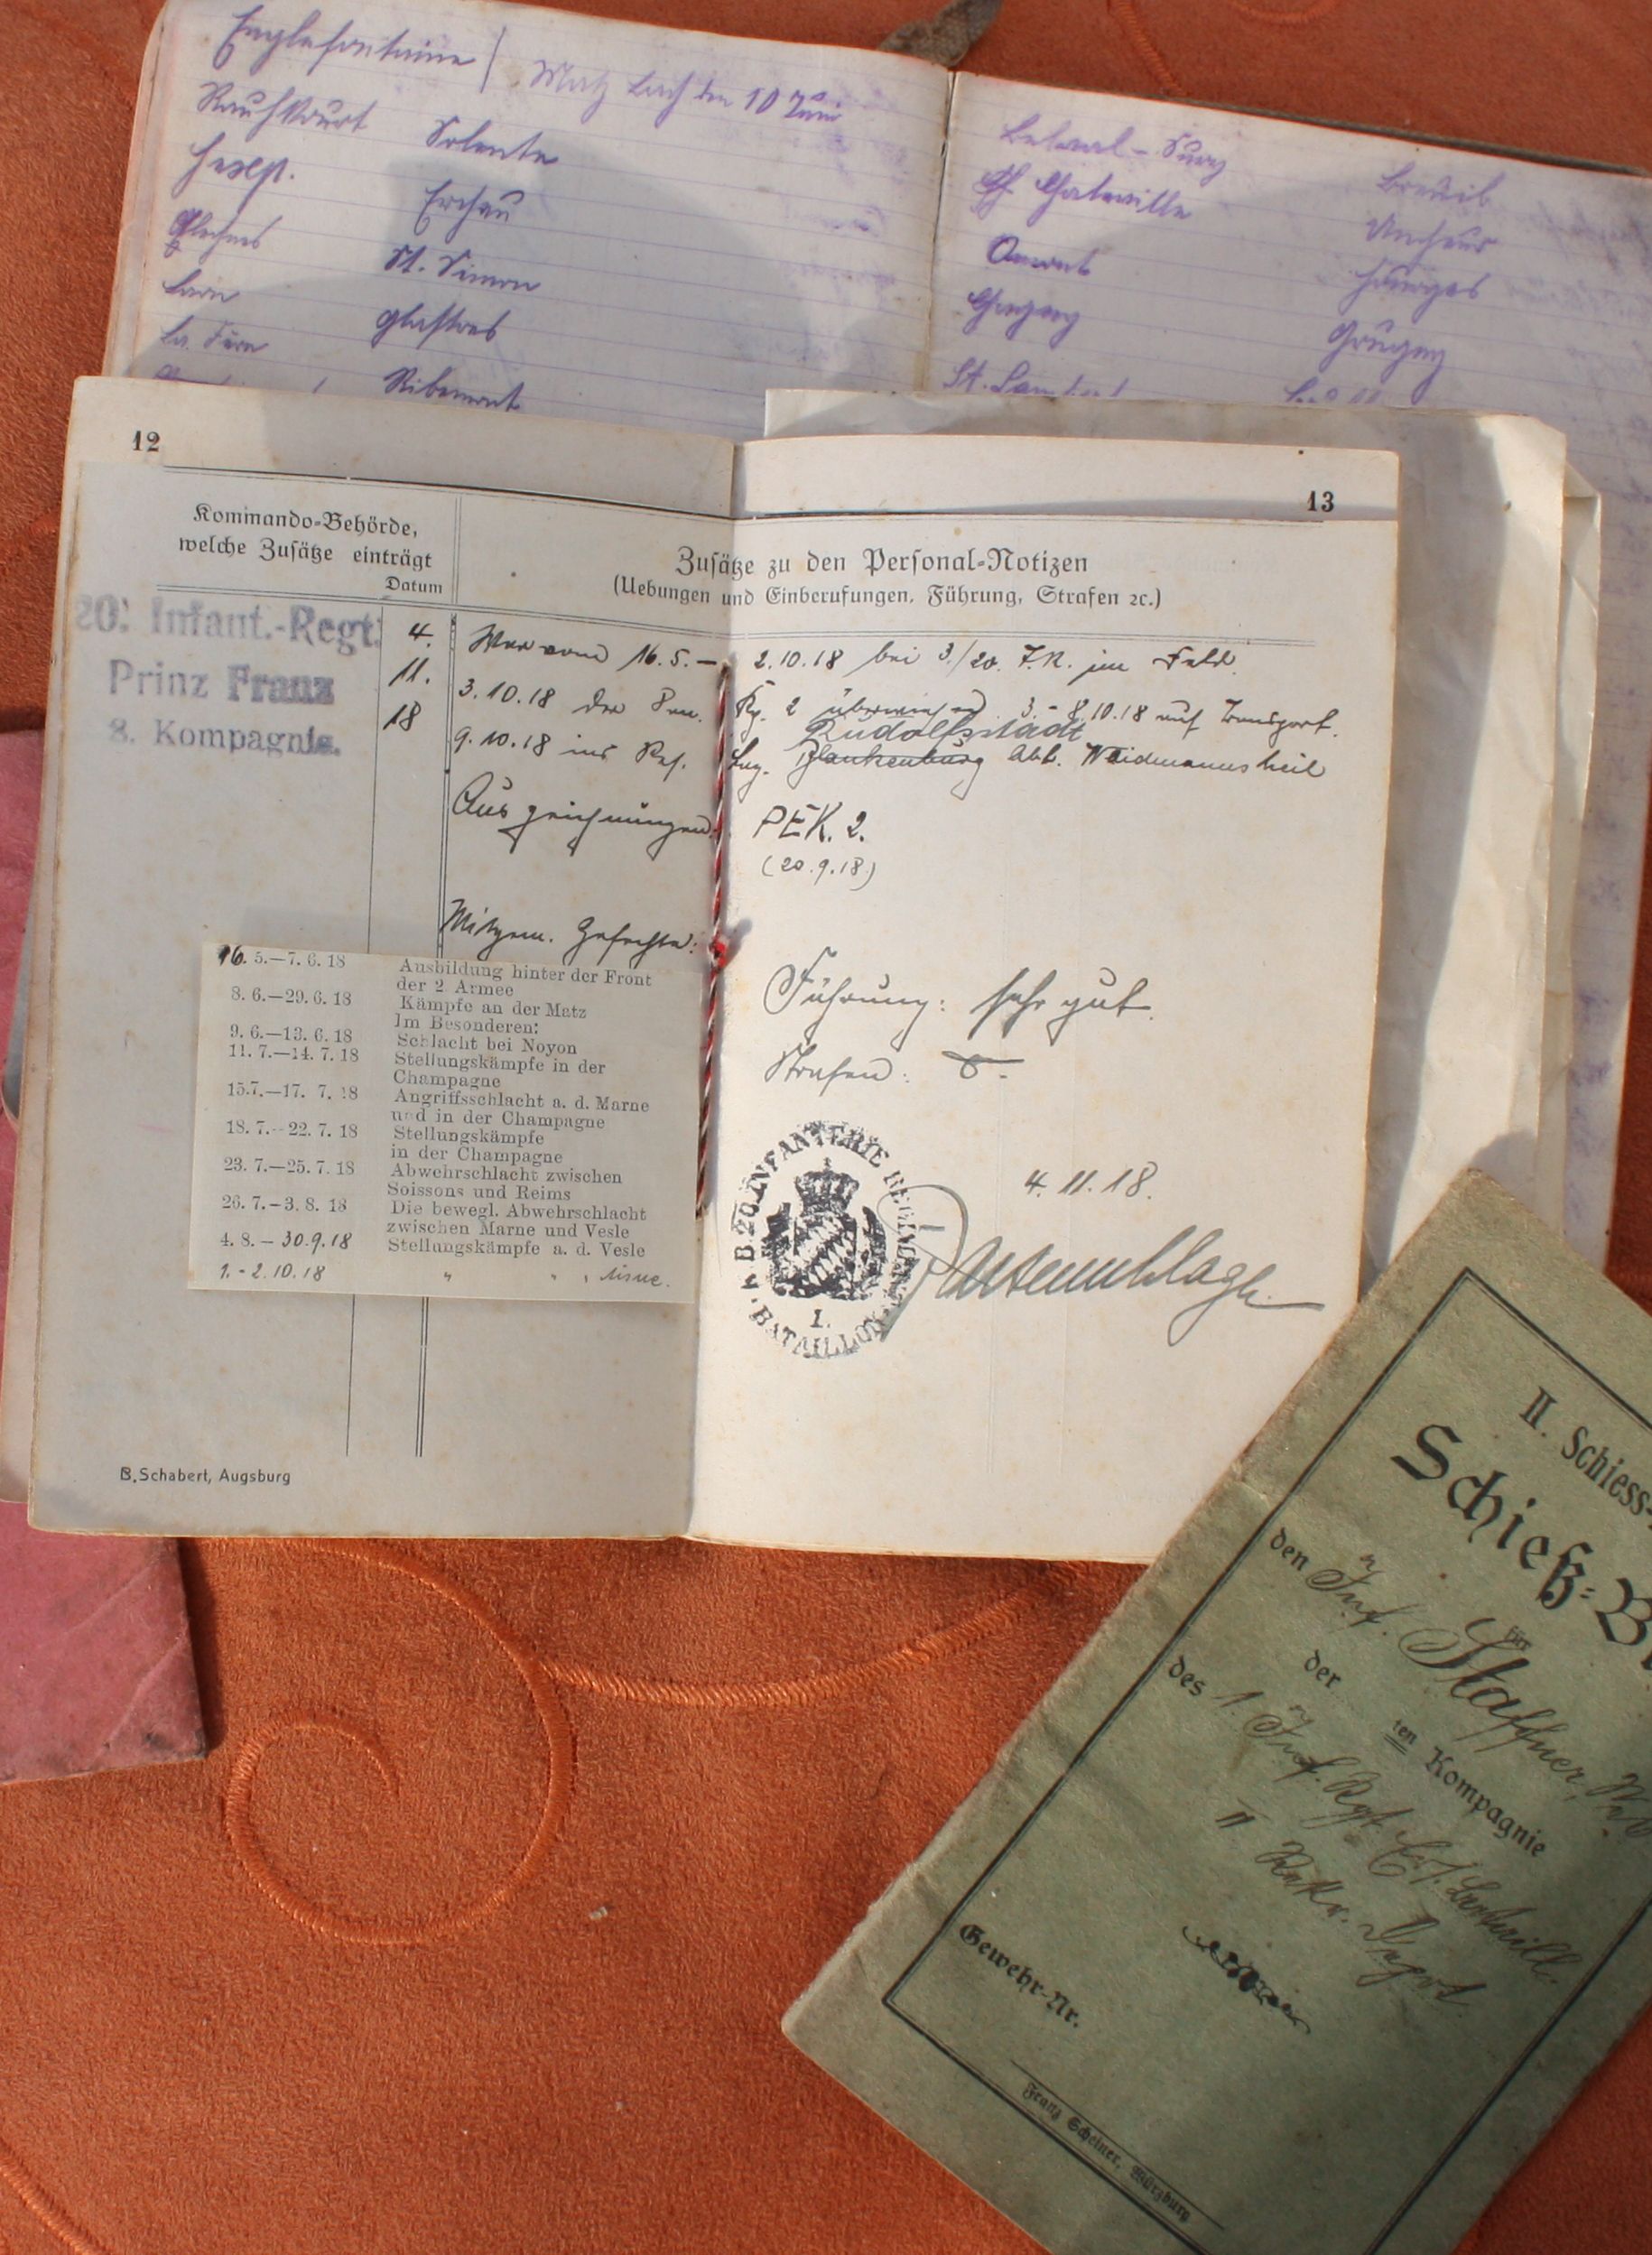 Englefontaine / Matz Lach den 10 Juni
Solente
Erchau
St. Simon
Ribemont
Laon
La Fère
Belval - Sury
Omont
Gruyny
St. Lambert
12
Kommando-Behörde,
welche Zusätze einträgt
Datum
20. Infant.-Regt.
Prinz Franz
8. Kompagnie.
4.
11.
18
13
Zusätze zu den Personal-Notizen
(Uebungen und Einberufungen, Führung, Strafen ꝛc.)
War vom 16.5. – 2.10.18 bei 3./20. I.R. im Feld.
3.10.18 der San. Kp. 2 überwiesen 3.-8.10.18 auf Transport.
Rudolfsstadt
9.10.18 ins Res. Laz. Blankenburg Abt. Waidmannsheil
Auszeichnungen: PEK. 2.
(20.9.18)
Mitgem. Gefechte:
16. 5.—7. 6. 18 Ausbildung hinter der Front
der 2. Armee
8. 6.—29. 6. 18 Kämpfe an der Matz
Im Besonderen:
9. 6.—13. 6. 18 Schlacht bei Noyon
11. 7.—14. 7. 18 Stellungskämpfe in der
Champagne
15.7.—17. 7. 18 Angriffsschlacht a. d. Marne
und in der Champagne
18. 7.—22. 7. 18 Stellungskämpfe
in der Champagne
23. 7.—25. 7. 18 Abwehrschlacht zwischen
Soissons und Reims
26. 7.—3. 8. 18 Die bewegl. Abwehrschlacht
zwischen Marne und Vesle
4. 8. – 30.9.18 Stellungskämpfe a. d. Vesle
1. - 2.10.18 " " " Aisne.
Führung: sehr gut.
Strafen: 0.
4.11.18.
K.B. 20. INFANTERIE REGIMENT
1.
BATAILLON
B. Schabert, Augsburg
II. Schiess-
Schieß-B
für
den Inf. Staffner,
der ten Kompagnie
des 1. Inf. Rgt.
II Rekr. Depot
Gewehr-Nr.
Franz Scheiner, Würzburg